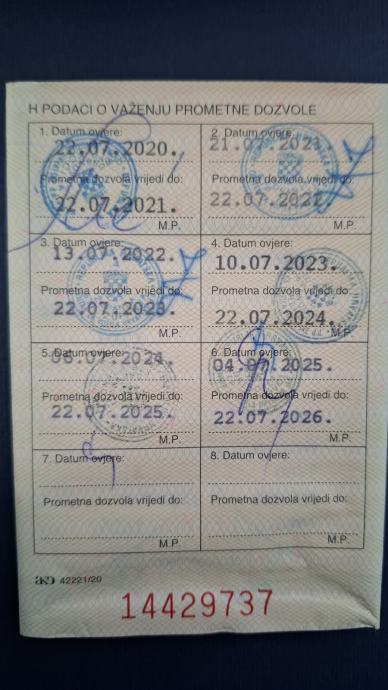 H PODACI O VAŽENJU PROMETNE DOZVOLE
1. Datum ovjere:
22.07.2020.
Prometna dozvola vrijedi do:
22.07.2021.
M.P.
2. Datum ovjere:
21.07.2021.
Prometna dozvola vrijedi do:
22.07.2022.
M.P.
3. Datum ovjere:
13.07.2022.
Prometna dozvola vrijedi do:
22.07.2023.
M.P.
4. Datum ovjere:
10.07.2023.
Prometna dozvola vrijedi do:
22.07.2024.
M.P.
5. Datum ovjere:
08.07.2024.
Prometna dozvola vrijedi do:
22.07.2025.
M.P.
6. Datum ovjere:
04.07.2025.
Prometna dozvola vrijedi do:
22.07.2026.
M.P.
7. Datum ovjere:
Prometna dozvola vrijedi do:
M.P.
8. Datum ovjere:
Prometna dozvola vrijedi do:
M.P.
42221/20
14429737